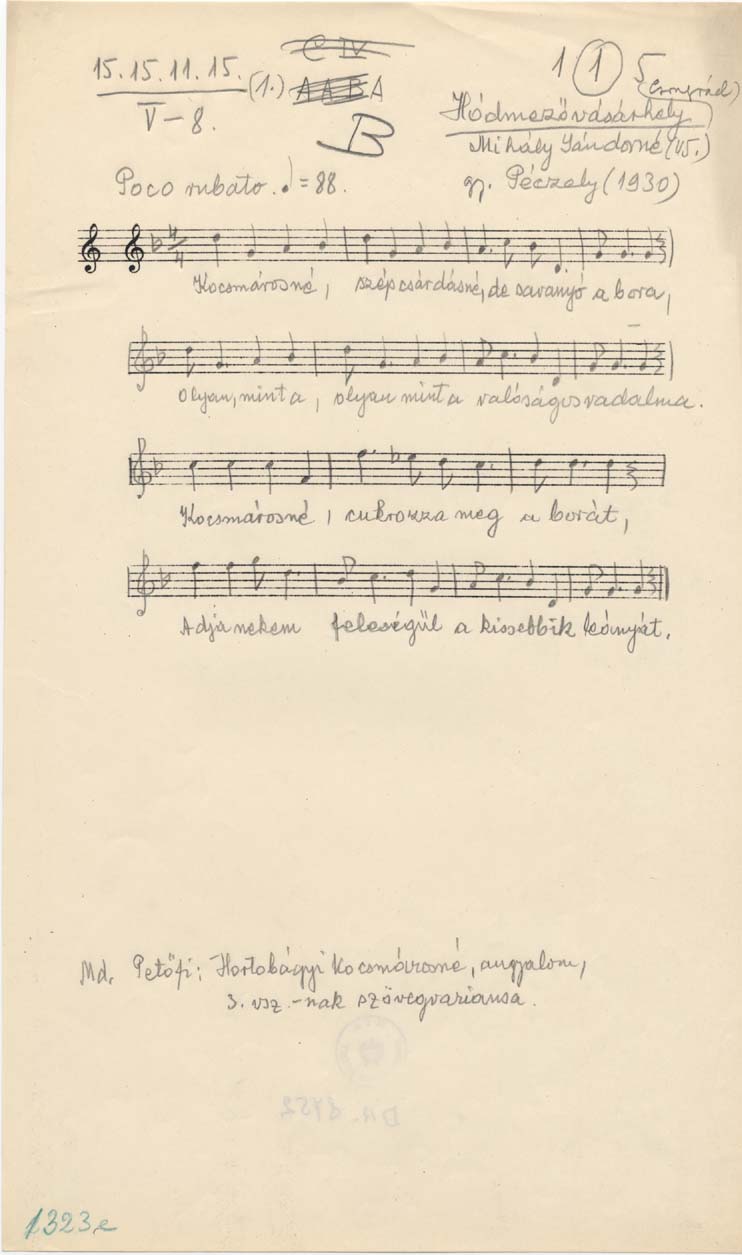 C IV
15. 15. 11. 15. (1.) A A B A
V - 8.
B
1 1 5
(Csongrád)
Hódmezővásárhely
Mihály Sándorné (45.)
gy. Péczely (1930)
Poco rubato. ♩ = 88.
4/4
Kocsmárosné, szép csárdásné, de savanyó a bora,
Olyan, mint a, olyan mint a valóságos vadalma.
Kocsmárosné, cukrozza meg a borát,
Adja nekem feleségül a kissebbik leányát.
Md. Petőfi: Hortobágyi kocsmárosné, angyalom,
3. vsz.-nak szövegvariánsa.
1323e